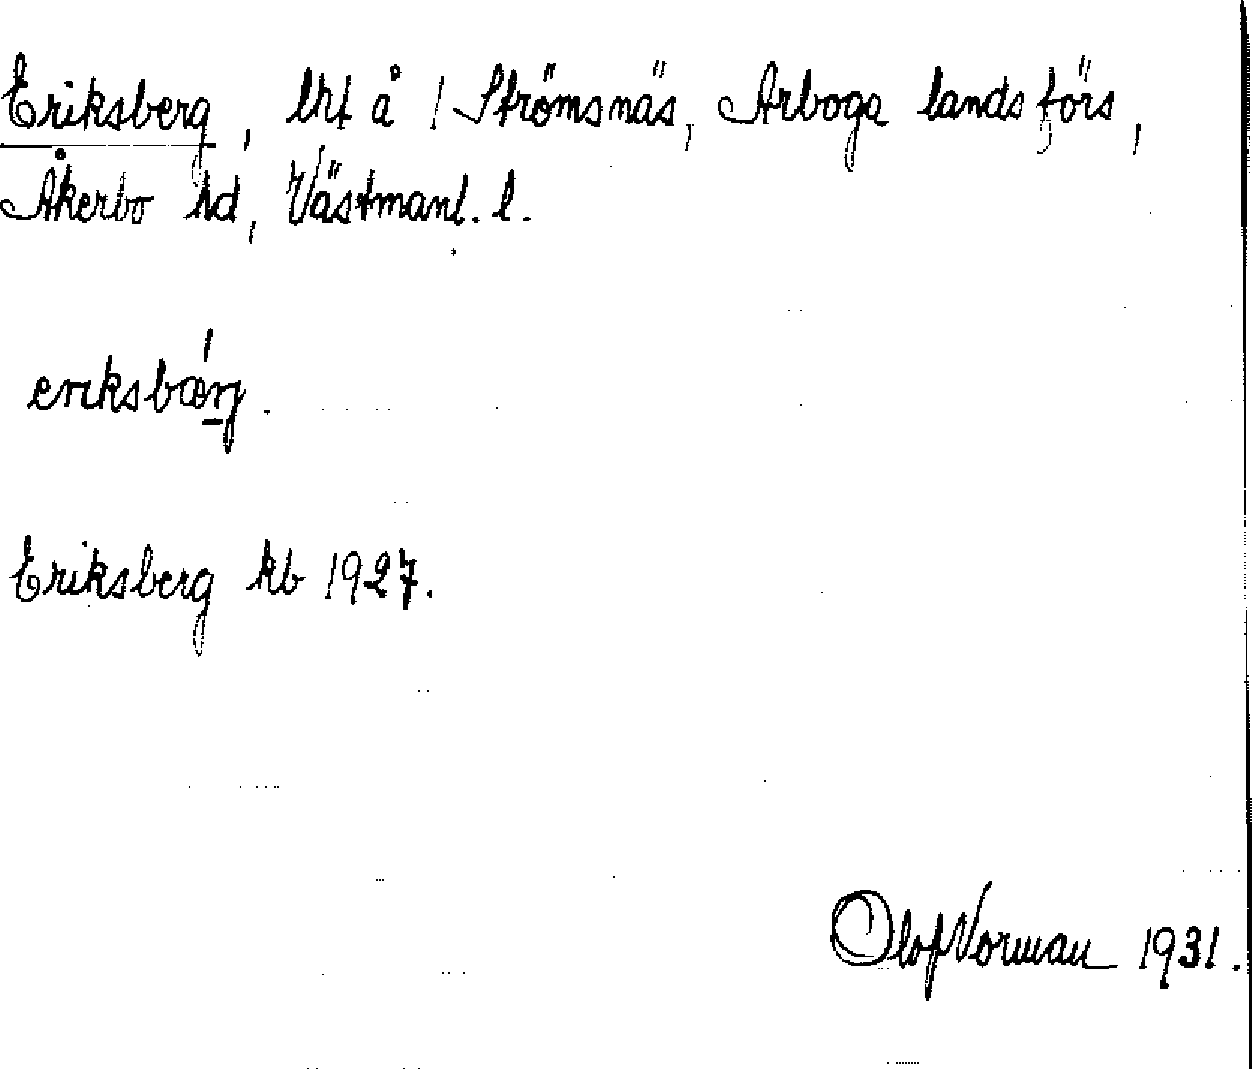 Eriksberg, lht å 1 Strömsnäs, Arboga landsförs,
Åkerbo hd, Västmanl. l.
eriksbærj.
Eriksberg kb 1927.
Olof Norman 1931.